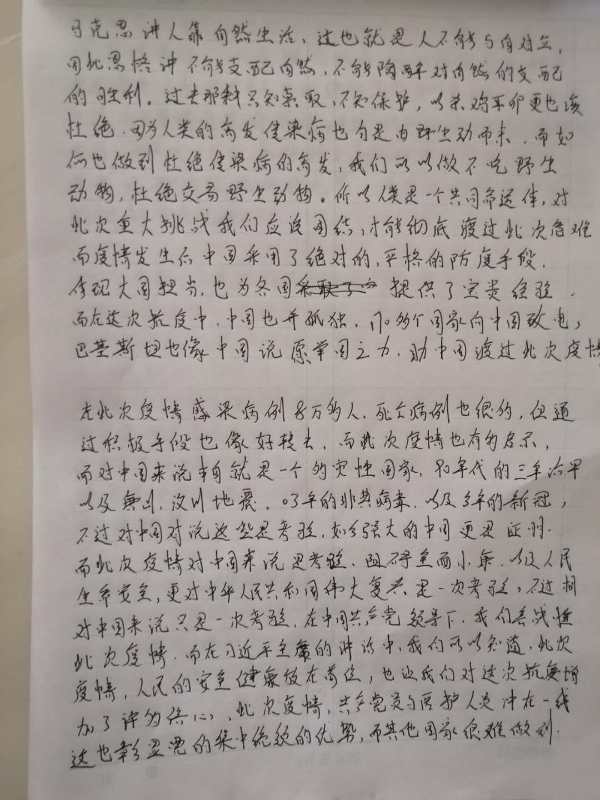 马克思讲人靠自然生活，这也就是人不能与自对立，
因此恩格 讲 不能支配自然，不能陶醉对自然的支配
的胜利。过去那料只知索取，不知保护，以来鸡平卵更也该
杜绝，因为人类的高发传染病也勾是由野生动而来，而如
何也做到杜绝传染病的高发，我们可以做不吃野生
动物，杜绝交易野生动物。所以人类是一个共同命运体，对
此次重大挑战我们应该团结，才能彻底 渡过此次危难
而疫情发生后 中国采用了绝对的，严格的防疫手段，
体现大国担当，也为各国 提供了宝贵经验．
而在这次抗疫中，中国也并孤独，many个国家向中国致电，
巴基斯坦也像中国说愿举国之力，助中国渡过此次疫情
尤此次疫情感染病例8万多人，死亡病例也很多，但通
过积极手段也像好转去，而此次疫情也有多启示，
而对中国来说本身就是一个多灾性国家，年代的三年治旱
以及，汶川地震，03年的非典病毒，以及今年的新冠，
不过对中国对说这些是考验，如今强大的中国更是证明．
而此次疫情对中国来说是考验，既不重而小年，以及人民
生命安全，更对中华人民共和国伟大复兴是一次考验，不过相
对中国来说只是一次考验，在中国共产党领导下，我们善战胜
此次疫情，而在习近平主席的讲话中，我们可以知道，此次
疫情，人民的安全健康放在高位，也让我们对这次抗疫增
加了许多信心，此次疫情，共产党员与医护人员冲在一线
这也彰显党的集中统领的优势，而其他国家很难做到．